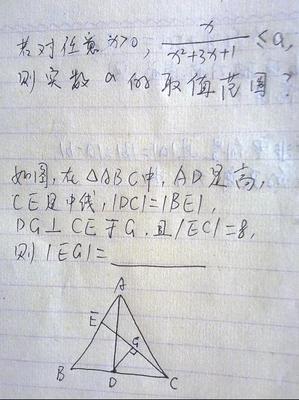 若对任意x>0, x/(x²+3x+1) ≤a,
则实数a的取值范围?
如图,在△ABC中,AD是高,
CE是中线,|DC|=|BE|,
DG⊥CE于G,且|EC|=8,
则|EG|=
A
E
G
B
D
C